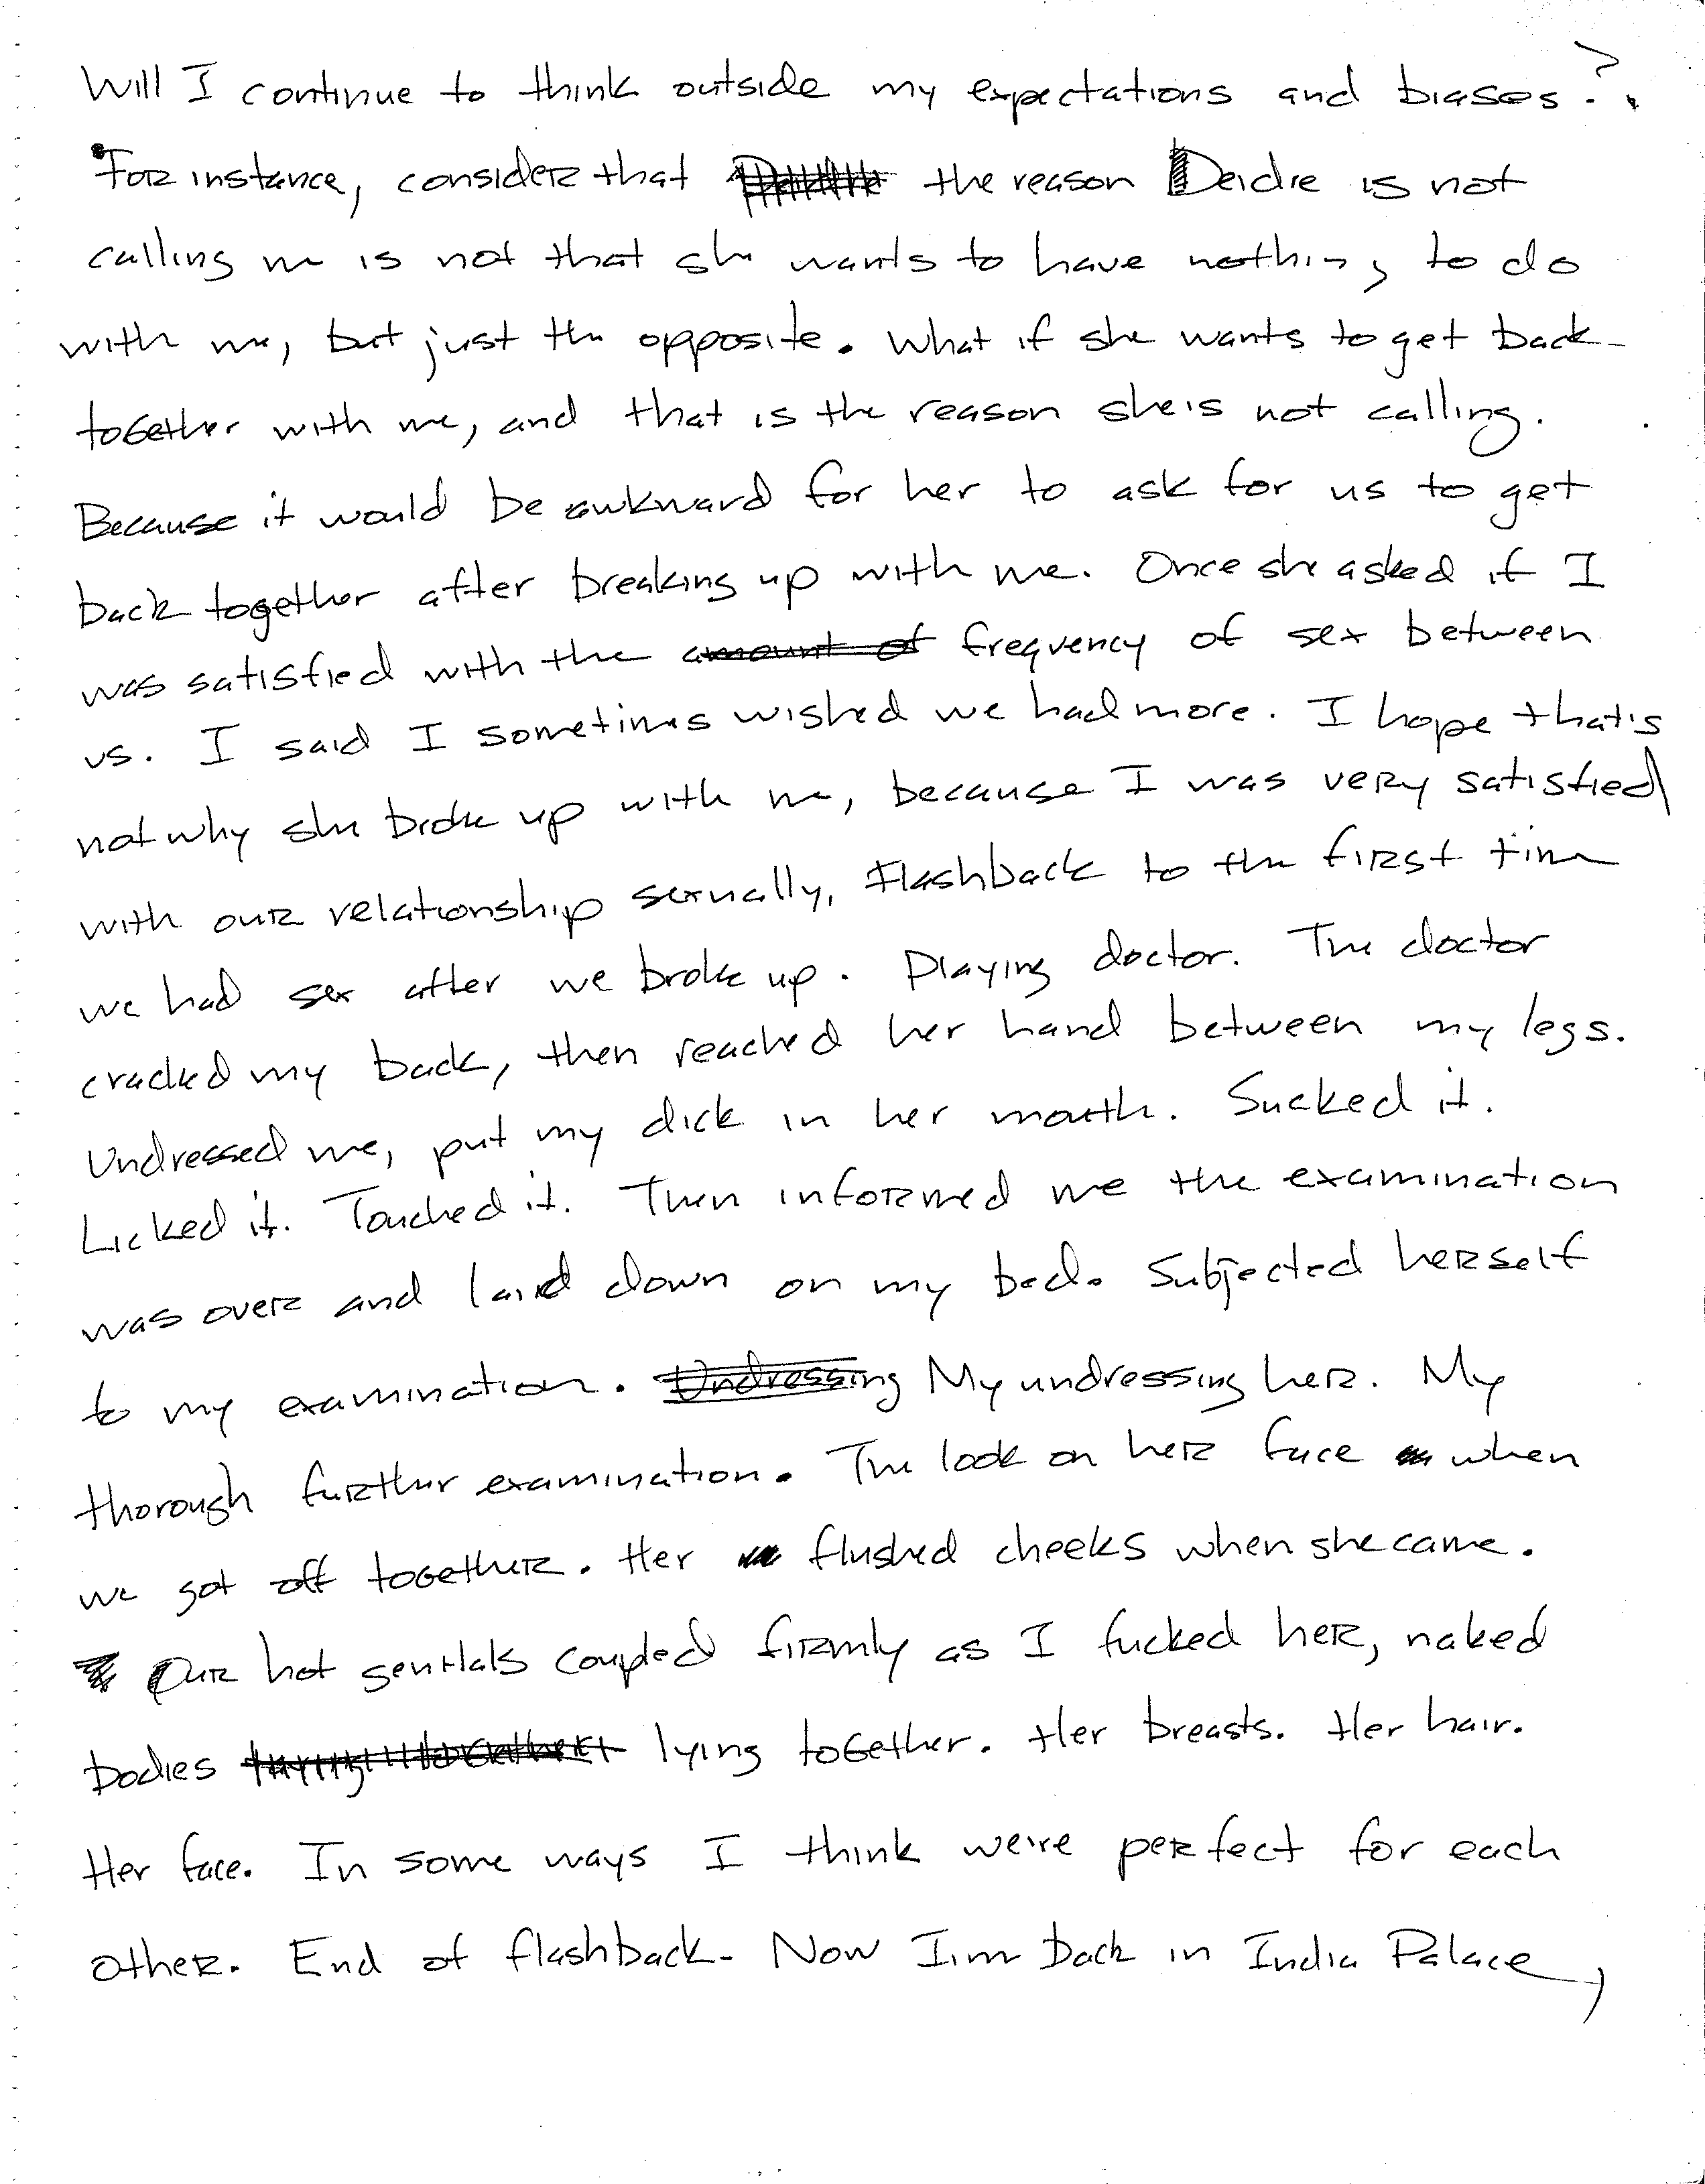 Will I continue to think outside my expectations and biases?.
For instance, consider that the reason Deidre is not
calling me is not that she wants to have nothing to do
with me, but just the opposite. What if she wants to get back
together with me, and that is the reason she's not calling.
Because it would be awkward for her to ask for us to get
back together after breaking up with me. Once she asked if I
was satisfied with the amount of frequency of sex between
us. I said I sometimes wished we had more. I hope that's
not why she broke up with me, because I was very satisfied
with our relationship sexually, Flashback to the first time
we had sex after we broke up. Playing doctor. The doctor
cracked my back, then reached her hand between my legs.
Undressed me, put my dick in her mouth. Sucked it.
Licked it. Touched it. Then informed me the examination
was over and laid down on my bed. Subjected herself
to my examination. Undressing My undressing her. My
thorough further examination. The look on her face when
we got off together. Her flushed cheeks when she came.
Our hot genitals coupled firmly as I fucked her, naked
bodies lying together. Her breasts. Her hair.
Her face. In some ways I think we're perfect for each
other. End of flashback. Now I'm back in India Palace,